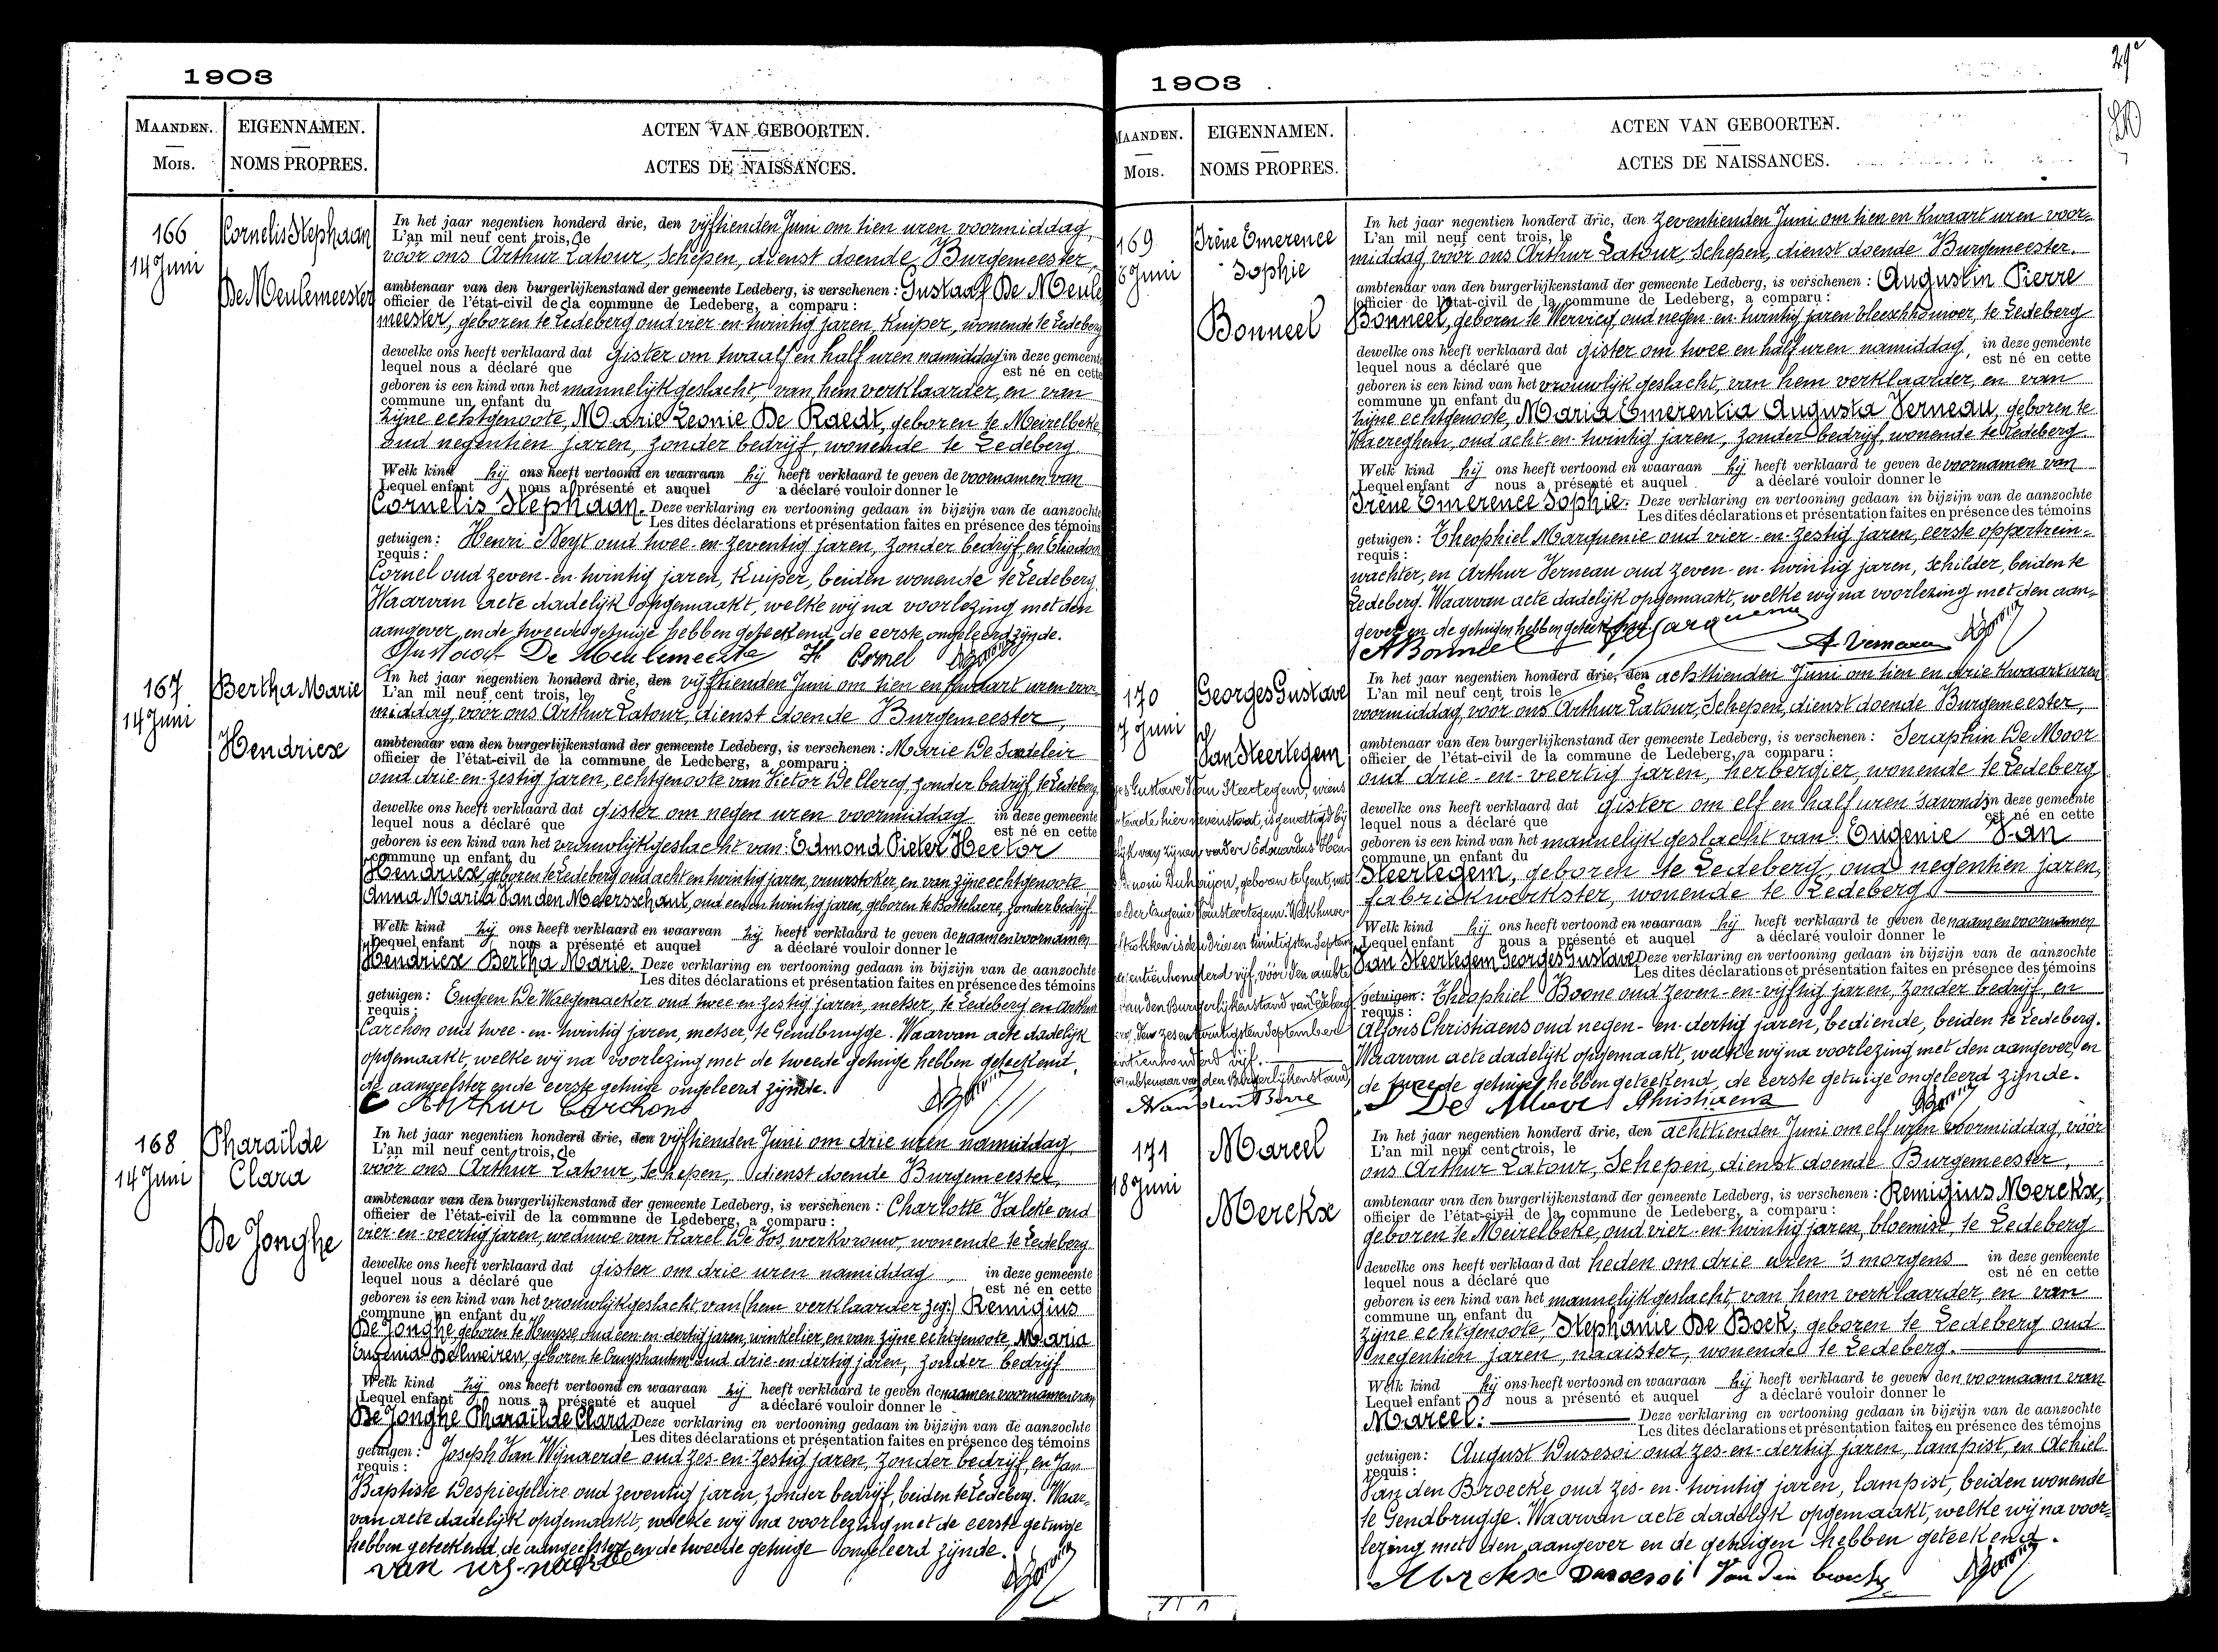 1903
MAANDEN. EIGENNAMEN. ACTEN VAN GEBOORTEN.
MOIS. NOMS PROPRES. ACTES DE NAISSANCES.
166
14 Juni
Cornelis Stephaan
De Meulemeester
In het jaar negentien honderd drie, den vijftienden Juni om tien uren voormiddag,
L'an mil neuf cent trois, le
voor ons Arthur Latour, Schepen, dienst doende Burgemeester,
ambtenaar van den burgerlijkenstand der gemeente Ledeberg, is verschenen: Gustaaf De Meule
officier de l'état-civil de la commune de Ledeberg, a comparu:
meester, geboren te Ledeberg oud vier-en-twintig jaren, Kuiper, wonende te Ledeberg
dewelke ons heeft verklaard dat gister om twaalf en half uren namiddag in deze gemeente
lequel nous a déclaré que est né en cette
geboren is een kind van het mannelijk geslacht, van hem verklaarder, en van
commune un enfant du
zijne echtgenoote, Marie Leonie De Raedt, geboren te Meirelbeke,
oud negentien jaren, zonder bedrijf, wonende te Ledeberg.
Welk kind hij ons heeft vertoond en waaraan hij heeft verklaard te geven de voornamen van
Lequel enfant nous a présenté et auquel a déclaré vouloir donner le
Cornelis Stephaan. Deze verklaring en vertooning gedaan in bijzijn van de aanzochte
Les dites déclarations et présentation faites en présence des témoins
getuigen: Henri Neyt oud twee-en-zeventig jaren, zonder bedrijf, en Eliodoor
requis:
Cornel oud zeven-en-twintig jaren, Kuiper, beiden wonende te Ledeberg.
Waarvan acte dadelijk opgemaakt, welke wij na voorlezing met den
aangever, en de tweede getuige hebben geteekend, de eerste ongeleerd zijnde.
Gustaaf De Meulemeester H Cornel
167
14 Juni
Bertha Marie
Hendricx
In het jaar negentien honderd drie, den vijftienden Juni om tien en kwaart uren voor-
L'an mil neuf cent trois, le
middag, vóór ons Arthur Latour, dienst doende Burgemeester,
ambtenaar van den burgerlijkenstand der gemeente Ledeberg, is verschenen: Marie De Sadeleir
officier de l'état-civil de la commune de Ledeberg, a comparu:
oud drie-en-zestig jaren, echtgenoote van Victor De Clercq, zonder bedrijf, te Ledeberg
dewelke ons heeft verklaard dat gister om negen uren voormiddag in deze gemeente
lequel nous a déclaré que est né en cette
geboren is een kind van het vrouwelijk geslacht van: Edmond Pieter Hector
commune un enfant du
Hendricx, geboren te Ledeberg oud acht en twintig jaren, vuurstoker, en van zijne echtgenoote
Anna Maria Van den Meersschaut, oud een en twintig jaren, geboren te Bottelaere, zonder bedrijf.
Welk kind hij ons heeft verklaard en waarvan hij heeft verklaard te geven de naam en voornamen
Lequel enfant nous a présenté et auquel a déclaré vouloir donner le
Hendricx Bertha Marie. Deze verklaring en vertooning gedaan in bijzijn van de aanzochte
Les dites déclarations et présentation faites en présence des témoins
getuigen: Eugeen De Waegemacker oud twee en zestig jaren, metser, te Ledeberg en Arthur
requis:
Carchon oud twee-en-twintig jaren, metser, te Gendbrugge. Waarvan acte dadelijk
opgemaakt, welke wij na voorlezing met de tweede getuige hebben geteekend,
de aangeefster en de eerste getuige ongeleerd zijnde.
Arthur Carchon
168
14 Juni
Pharaïlde
Clara
De Jonghe
In het jaar negentien honderd drie, den vijftienden Juni om drie uren namiddag
L'an mil neuf cent trois, le
vóór ons Arthur Latour, Schepen, dienst doende Burgemeester,
ambtenaar van den burgerlijkenstand der gemeente Ledeberg, is verschenen: Charlotte Valcke oud
officier de l'état-civil de la commune de Ledeberg, a comparu:
vier-en-veertig jaren, weduwe van Karel De Vos, werkvrouw, wonende te Ledeberg
dewelke ons heeft verklaard dat gister om drie uren namiddag, in deze gemeente
lequel nous a déclaré que est né en cette
geboren is een kind van het vrouwelijk geslacht, van (hem verklaarder zeg:) Remigius
commune un enfant du
De Jonghe, geboren te Huysse oud een-en-dertig jaren, winkelier, en van zijne echtgenoote, Maria
Eugenia Delmeiren, geboren te Cruyshautem oud drie-en-dertig jaren, zonder bedrijf
Welk kind hij ons heeft vertoond en waaraan hij heeft verklaard te geven de naam en voornamen van
Lequel enfant nous a présenté et auquel a déclaré vouloir donner le
De Jonghe Pharaïlde Clara. Deze verklaring en vertooning gedaan in bijzijn van de aanzochte
Les dites déclarations et présentation faites en présence des témoins
getuigen: Joseph Van Wijnaerde oud zes-en-zestig jaren, zonder bedrijf, en Jan
requis:
Baptiste Despiegeleire oud zeventig jaren, zonder bedrijf, beiden te Ledeberg. Waar-
van acte dadelijk opgemaakt, welke wij na voorlezing met de eerste getuige
hebben geteekend, de aangeefster en de tweede getuige ongeleerd zijnde.
1903
MAANDEN. EIGENNAMEN. ACTEN VAN GEBOORTEN.
MOIS. NOMS PROPRES. ACTES DE NAISSANCES.
169
6 Juni
Irène Emerence
Sophie
Bonneel
In het jaar negentien honderd drie, den zeventienden Juni om tien en kwaart uren voor-
L'an mil neuf cent trois, le
middag, voor ons Arthur Latour, Schepen, dienst doende Burgemeester.
ambtenaar van den burgerlijkenstand der gemeente Ledeberg, is verschenen: Augustin Pierre
officier de l'état-civil de la commune de Ledeberg, a comparu:
Bonneel, geboren te Wervicq, oud negen-en-twintig jaren vleeschhouwer, te Ledeberg
dewelke ons heeft verklaard dat gister om twee en half uren namiddag, in deze gemeente
lequel nous a déclaré que est né en cette
geboren is een kind van het vrouwelijk geslacht, van hem verklaarder, en van
commune un enfant du
zijne echtgenoote, Maria Emerentia Augusta Verneau, geboren te
Waereghem, oud acht-en-twintig jaren, zonder bedrijf, wonende te Ledeberg
Welk kind hij ons heeft vertoond en waaraan hij heeft verklaard te geven de voornamen van
Lequel enfant nous a présenté et auquel a déclaré vouloir donner le
Irène Emerence Sophie. Deze verklaring en vertooning gedaan in bijzijn van de aanzochte
Les dites déclarations et présentation faites en présence des témoins
getuigen: Theophiel Marquenie oud vier-en-zestig jaren, eerste oppertrein-
requis:
wachter, en Arthur Verneau oud zeven-en-twintig jaren, schilder, beiden te
Ledeberg. Waarvan acte dadelijk opgemaakt, welke wij na voorlezing met den aan-
gever en de getuigen hebben geteekend.
A Bonneel A. Verneau
170
7 Juni
Georges Gustave
Van Steertegem
In het jaar negentien honderd drie, den achttienden Juni om tien en drie kwaart uren
L'an mil neuf cent trois le
voormiddag, voor ons Arthur Latour, Schepen, dienst doende Burgemeester,
ambtenaar van den burgerlijkenstand der gemeente Ledeberg, is verschenen: Seraphin De Moor
officier de l'état-civil de la commune de Ledeberg, a comparu:
oud drie-en-veertig jaren, herbergier, wonende te Ledeberg
dewelke ons heeft verklaard dat gister om elf en half uren 's avonds in deze gemeente
lequel nous a déclaré que est né en cette
geboren is een kind van het mannelijk geslacht van: Eugenie Van
commune un enfant du
Steertegem, geboren te Ledeberg, oud negentien jaren,
fabriekwerkster, wonende te Ledeberg
Welk kind hij ons heeft vertoond en waaraan hij heeft verklaard te geven de naam en voornamen
Lequel enfant nous a présenté et auquel a déclaré vouloir donner le
Van Steertegem Georges Gustave. Deze verklaring en vertooning gedaan in bijzijn van de aanzochte
Les dites déclarations et présentation faites en présence des témoins
getuigen: Theophiel Boone oud zeven-en-vijftig jaren, zonder bedrijf, en
requis:
Alfons Christiaens oud negen-en-dertig jaren, bediende, beiden te Ledeberg.
Waarvan acte dadelijk opgemaakt, welke wij na voorlezing met den aangever, en
de tweede getuige hebben geteekend, de eerste getuige ongeleerd zijnde.
S De Moor Christiaens
Gustave Van Steertegem, wiens
acte hier nevenstaat, is gewettigd bij
van zijnen vader Edouardus
geboren te Gent, met
Eugenie Van Steertegem. Welk huwe-
is den drie en twintigsten Septem
honderd vijf, vóór den ambte
van den Burgerlijkenstand van Ledeberg
den zes en twintigsten September
honderd vijf.
ambtenaar van den Burgerlijkenstand,
171
18 Juni
Marcel
Merckx
In het jaar negentien honderd drie, den achttienden Juni om elf uren voormiddag, vóór
L'an mil neuf cent trois, le
ons Arthur Latour, Schepen, dienst doende Burgemeester,
ambtenaar van den burgerlijkenstand der gemeente Ledeberg, is verschenen: Remigius Merckx,
officier de l'état-civil de la commune de Ledeberg, a comparu:
geboren te Meirelbeke, oud vier-en-twintig jaren, bloemist, te Ledeberg
dewelke ons heeft verklaard dat heden om drie uren 's morgens in deze gemeente
lequel nous a déclaré que est né en cette
geboren is een kind van het mannelijk geslacht, van hem verklaarder, en van
commune un enfant du
zijne echtgenoote, Stephanie De Bock, geboren te Ledeberg oud
negentien jaren, naaister, wonende te Ledeberg.
Welk kind hij ons heeft vertoond en waaraan hij heeft verklaard te geven den voornaam van
Lequel enfant nous a présenté et auquel a déclaré vouloir donner le
Marcel. Deze verklaring en vertooning gedaan in bijzijn van de aanzochte
Les dites déclarations et présentation faites en présence des témoins
getuigen: August Dusesoi oud zes-en-dertig jaren, lampist, en Achiel
requis:
Van den Broecke oud zes-en-twintig jaren, lampist, beiden wonende
te Gendbrugge. Waarvan acte dadelijk opgemaakt, welke wij na voor-
lezing met den aangever en de getuigen hebben geteekend.
Merckx Dusesoi Van den broecke